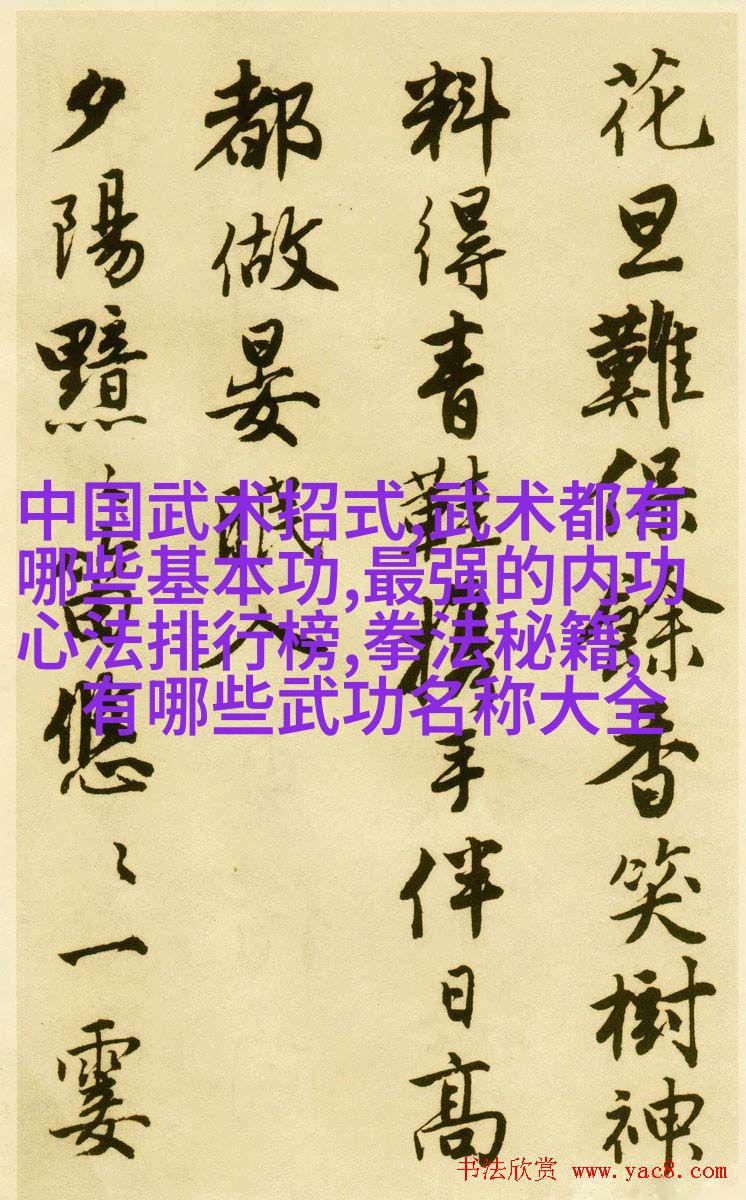 花旦難保餘香笑樹神
料得青鞋攜手伴日高
都做晏眠人
夕陽黯〻笛悠〻一霎
中国武术招式,武术都有
哪些基本功,最强的内功
心法排行榜,拳法秘籍,
有哪些武功名称大全
书法欣赏 www.yac8.com